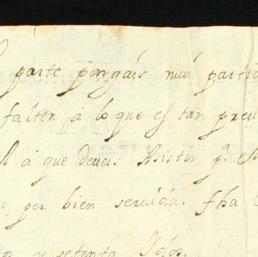 parte pongais muj partic
falten a lo que es tan preci
a que deveis Asistir p.
por bien servida. fha
y setenta